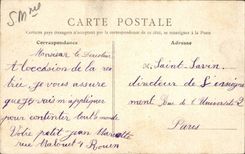 SMme
CARTE POSTALE
Tous les pays étrangers n'acceptent pas la correspondance de ce côté, se renseigner à la poste
Correspondance
Adresse
Monsieur le Directeur
A l'occasion de la ren
trée, je vous assure
que je vais m'appliquer
pour contenter tout le monde
Votre petit Jean
rue 4 Rouen
Saint-Savin
directeur de l'enseigne
ment Rue de l'Université 2
Paris